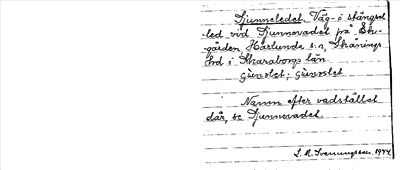 Djunneledet. Väg- o stängsel
-led vid Djunnevadet på Sto-
gården Härlunda s:n, Skånings
hrd i Skaraborgs län.
Namn efter vadstället
där, se Djunnevadet.
S. A. Svenungsson. 1944.